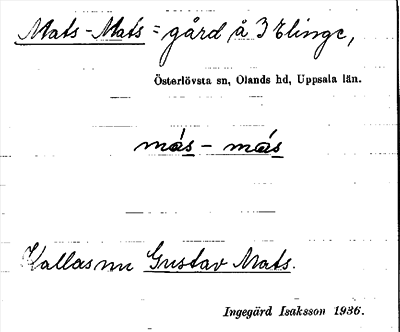 Mats-Mats = gård å 3 Elinge,
Österlövsta sn, Olands hd, Uppsala län.
más - más
Kallas nu Gustav Mats.
Ingegärd Isaksson 1936.